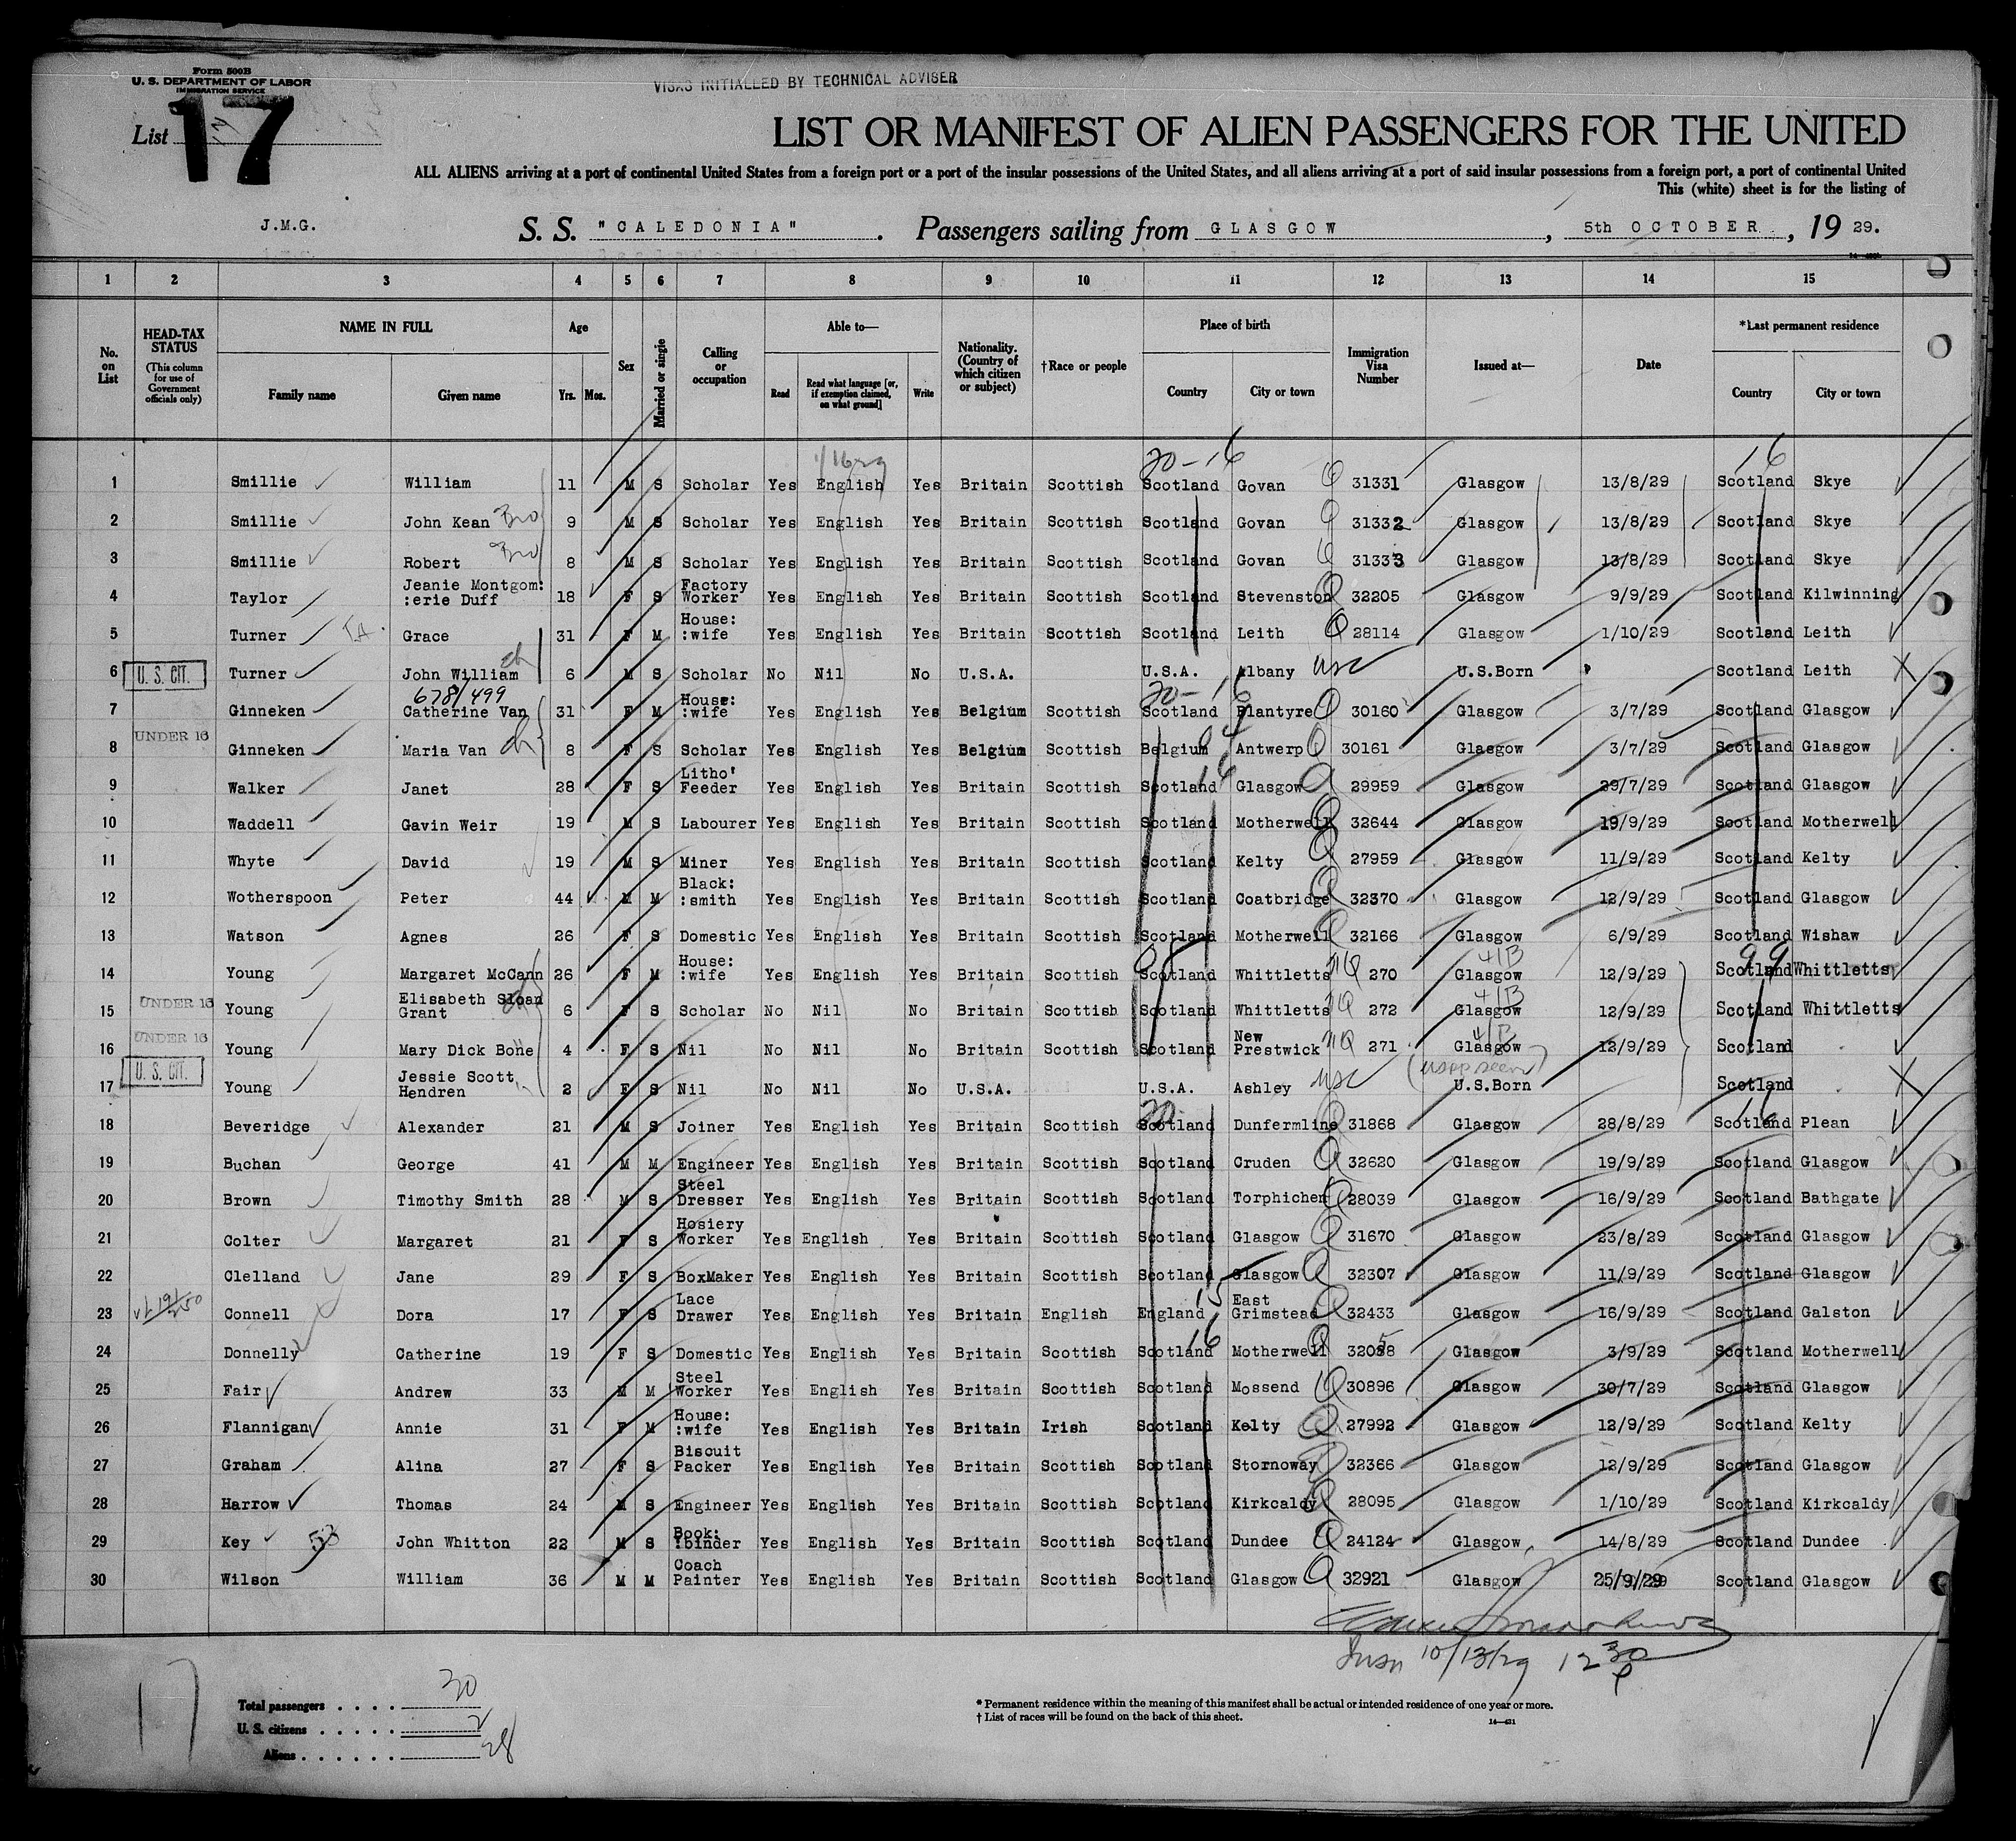 Form 500B
U. S. DEPARTMENT OF LABOR
IMMIGRATION SERVICE
VISAS INITIALLED BY TECHNICAL ADVISER
List 17
LIST OR MANIFEST OF ALIEN PASSENGERS FOR THE UNITED
ALL ALIENS arriving at a port of continental United States from a foreign port or a port of the insular possessions of the United States, and all aliens arriving at a port of said insular possessions from a foreign port, a port of continental United
This (white) sheet is for the listing of
J.M.G. S. S. "CALEDONIA" . Passengers sailing from GLASGOW , 5th OCTOBER , 19 29.
1 2 3 4 5 6 7 8 9 10 11 12 13 14 15
No. on List
HEAD-TAX STATUS
(This column for use of Government officials only)
NAME IN FULL
Family name Given name
Age
Yrs. Mos.
Sex
Married or single
Calling or occupation
Able to—
Read Read what language [or, if exemption claimed, on what ground] Write
Nationality. (Country of which citizen or subject)
†Race or people
Place of birth
Country City or town
Immigration Visa Number
Issued at—
Date
*Last permanent residence
Country City or town
20-16 16
1 Smillie William 11 M S Scholar Yes English Yes Britain Scottish Scotland Govan 31331 Glasgow 13/8/29 Scotland Skye
2 Smillie John Kean Bro 9 M S Scholar Yes English Yes Britain Scottish Scotland Govan 31332 Glasgow 13/8/29 Scotland Skye
3 Smillie Robert Bro 8 M S Scholar Yes English Yes Britain Scottish Scotland Govan 31333 Glasgow 13/8/29 Scotland Skye
4 Taylor Jeanie Montgom: :erie Duff 18 F S Factory Worker Yes English Yes Britain Scottish Scotland Stevenston 32205 Glasgow 9/9/29 Scotland Kilwinning
5 Turner Grace 31 F M House: :wife Yes English Yes Britain Scottish Scotland Leith 28114 Glasgow 1/10/29 Scotland Leith
6 U. S. CIT. Turner John William ch 6 M S Scholar No Nil No U.S.A. U.S.A. Albany USC U.S.Born Scotland Leith
678/499
7 Ginneken Catherine Van 31 F M House: :wife Yes English Yes Belgium Scottish Scotland Blantyre 30160 Glasgow 3/7/29 Scotland Glasgow
8 UNDER 16 Ginneken Maria Van ch 8 F S Scholar Yes English Yes Belgium Scottish Belgium Antwerp 30161 Glasgow 3/7/29 Scotland Glasgow
9 Walker Janet 28 F S Litho' Feeder Yes English Yes Britain Scottish Scotland Glasgow 29959 Glasgow 29/7/29 Scotland Glasgow
10 Waddell Gavin Weir 19 M S Labourer Yes English Yes Britain Scottish Scotland Motherwell 32644 Glasgow 19/9/29 Scotland Motherwell
11 Whyte David 19 M S Miner Yes English Yes Britain Scottish Scotland Kelty 27959 Glasgow 11/9/29 Scotland Kelty
12 Wotherspoon Peter 44 M M Black: :smith Yes English Yes Britain Scottish Scotland Coatbridge 32370 Glasgow 12/9/29 Scotland Glasgow
13 Watson Agnes 26 F S Domestic Yes English Yes Britain Scottish Scotland Motherwell 32166 Glasgow 6/9/29 Scotland Wishaw
14 Young Margaret McCann 26 F M House: :wife Yes English Yes Britain Scottish Scotland Whittletts NQ 270 Glasgow 4/B 12/9/29 Scotland Whittletts
15 UNDER 16 Young Elisabeth Sloan Grant 6 F S Scholar No Nil No Britain Scottish Scotland Whittletts NQ 272 Glasgow 4/B 12/9/29 Scotland Whittletts
16 UNDER 16 Young Mary Dick Bone 4 F S Nil No Nil No Britain Scottish Scotland New Prestwick NQ 271 Glasgow 4/B 12/9/29 Scotland
17 U. S. CIT. Young Jessie Scott Hendren 2 F S Nil No Nil No U.S.A. U.S.A. Ashley USC (uspp seen) U.S.Born Scotland
18 Beveridge Alexander 21 M S Joiner Yes English Yes Britain Scottish Scotland Dunfermline 31868 Glasgow 28/8/29 Scotland Plean
19 Buchan George 41 M M Engineer Yes English Yes Britain Scottish Scotland Cruden 32620 Glasgow 19/9/29 Scotland Glasgow
20 Brown Timothy Smith 28 M S Steel Dresser Yes English Yes Britain Scottish Scotland Torphichen 28039 Glasgow 16/9/29 Scotland Bathgate
21 Colter Margaret 21 F S Hosiery Worker Yes English Yes Britain Scottish Scotland Glasgow 31670 Glasgow 23/8/29 Scotland Glasgow
22 Clelland Jane 29 F S BoxMaker Yes English Yes Britain Scottish Scotland Glasgow 32307 Glasgow 11/9/29 Scotland Glasgow
23 Connell Dora 17 F S Lace Drawer Yes English Yes Britain English England East Grimstead 32433 Glasgow 16/9/29 Scotland Galston
24 Donnelly Catherine 19 F S Domestic Yes English Yes Britain Scottish Scotland Motherwell 32058 Glasgow 3/9/29 Scotland Motherwell
25 Fair Andrew 33 M M Steel Worker Yes English Yes Britain Scottish Scotland Mossend 30896 Glasgow 30/7/29 Scotland Glasgow
26 Flannigan Annie 31 F M House: :wife Yes English Yes Britain Irish Scotland Kelty 27992 Glasgow 12/9/29 Scotland Kelty
27 Graham Alina 27 F S Biscuit Packer Yes English Yes Britain Scottish Scotland Stornoway 32366 Glasgow 12/9/29 Scotland Glasgow
28 Harrow Thomas 24 M S Engineer Yes English Yes Britain Scottish Scotland Kirkcaldy 28095 Glasgow 1/10/29 Scotland Kirkcaldy
29 Key 53 John Whitton 22 M S Book: :binder Yes English Yes Britain Scottish Scotland Dundee 24124 Glasgow 14/8/29 Scotland Dundee
30 Wilson William 36 M M Coach Painter Yes English Yes Britain Scottish Scotland Glasgow 32921 Glasgow 25/9/29 Scotland Glasgow
10/13/29 12 30 P
17
Total passengers . . . . 30
U. S. citizens . . . . . 2
Aliens . . . . . . 28
* Permanent residence within the meaning of this manifest shall be actual or intended residence of one year or more.
† List of races will be found on the back of this sheet.
14—431